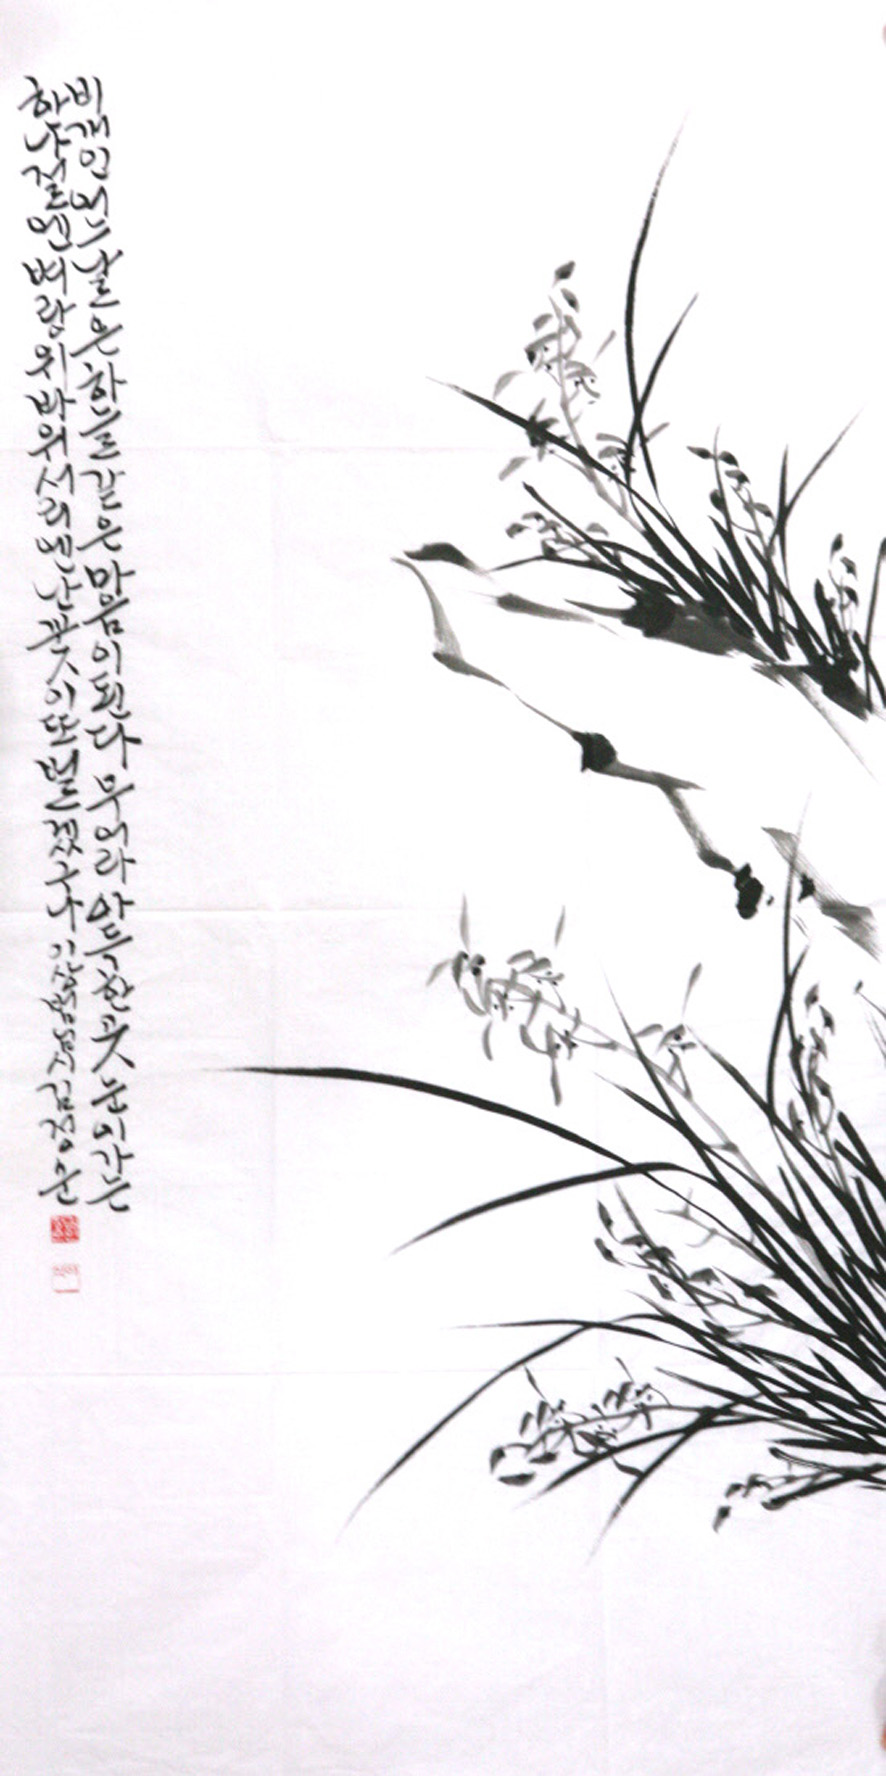 비 개인 어느 날은 하늘 같은 마음이 된다 무어라 아득한 곳 눈이 가는
벼랑 위 바위서리엔 난꽃이 또 벌겠구나 이상범님 시 김정순